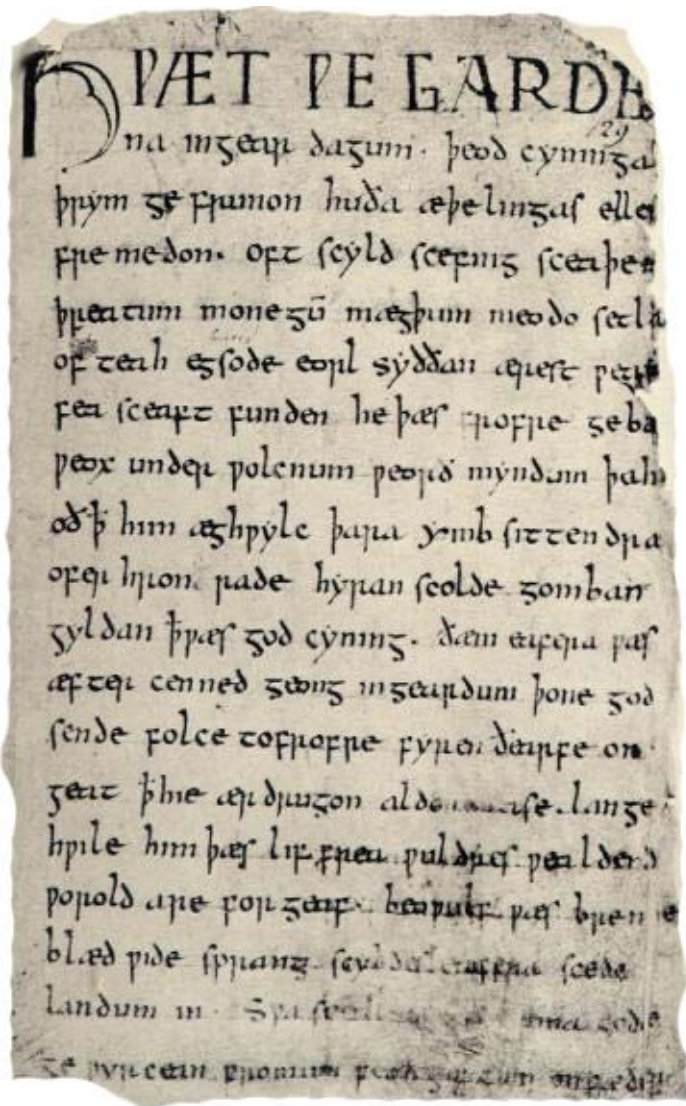 HǷÆT ǷE GARDE
129
na ingear dagum. þeod cyninga
þrym ge frunon huða æþelingas elle
fre medon. oft scyld scefing sceaþe
þreatum monegū mægþum meodo setla
of teah egsode eorl syððan ærest ƿea
fea sceaft funden he þæs frofre geba
ƿeox under ƿolcnum ƿeorð myndum þah
oð ꝥ him æghƿylc þara ymb sittendra
ofer hron rade hyran scolde gomban
gyldan ꝥ ƿæs god cyning. ðæm eafera ƿæs
æfter cenned geong ingeardum þone god
sende folce tofrofre fyren ðearfe on
geat ꝥ hie ær drugon aldor ase. lange
hƿile him þæs lif frea ƿuldres ƿealdend
ƿorold are for geaf. beoƿulf ƿæs breme
blæd ƿide sprang scyldes eafera scede
landum in. Sƿa sceal ma gode
ge ƿyrcean fromum feoh giftum